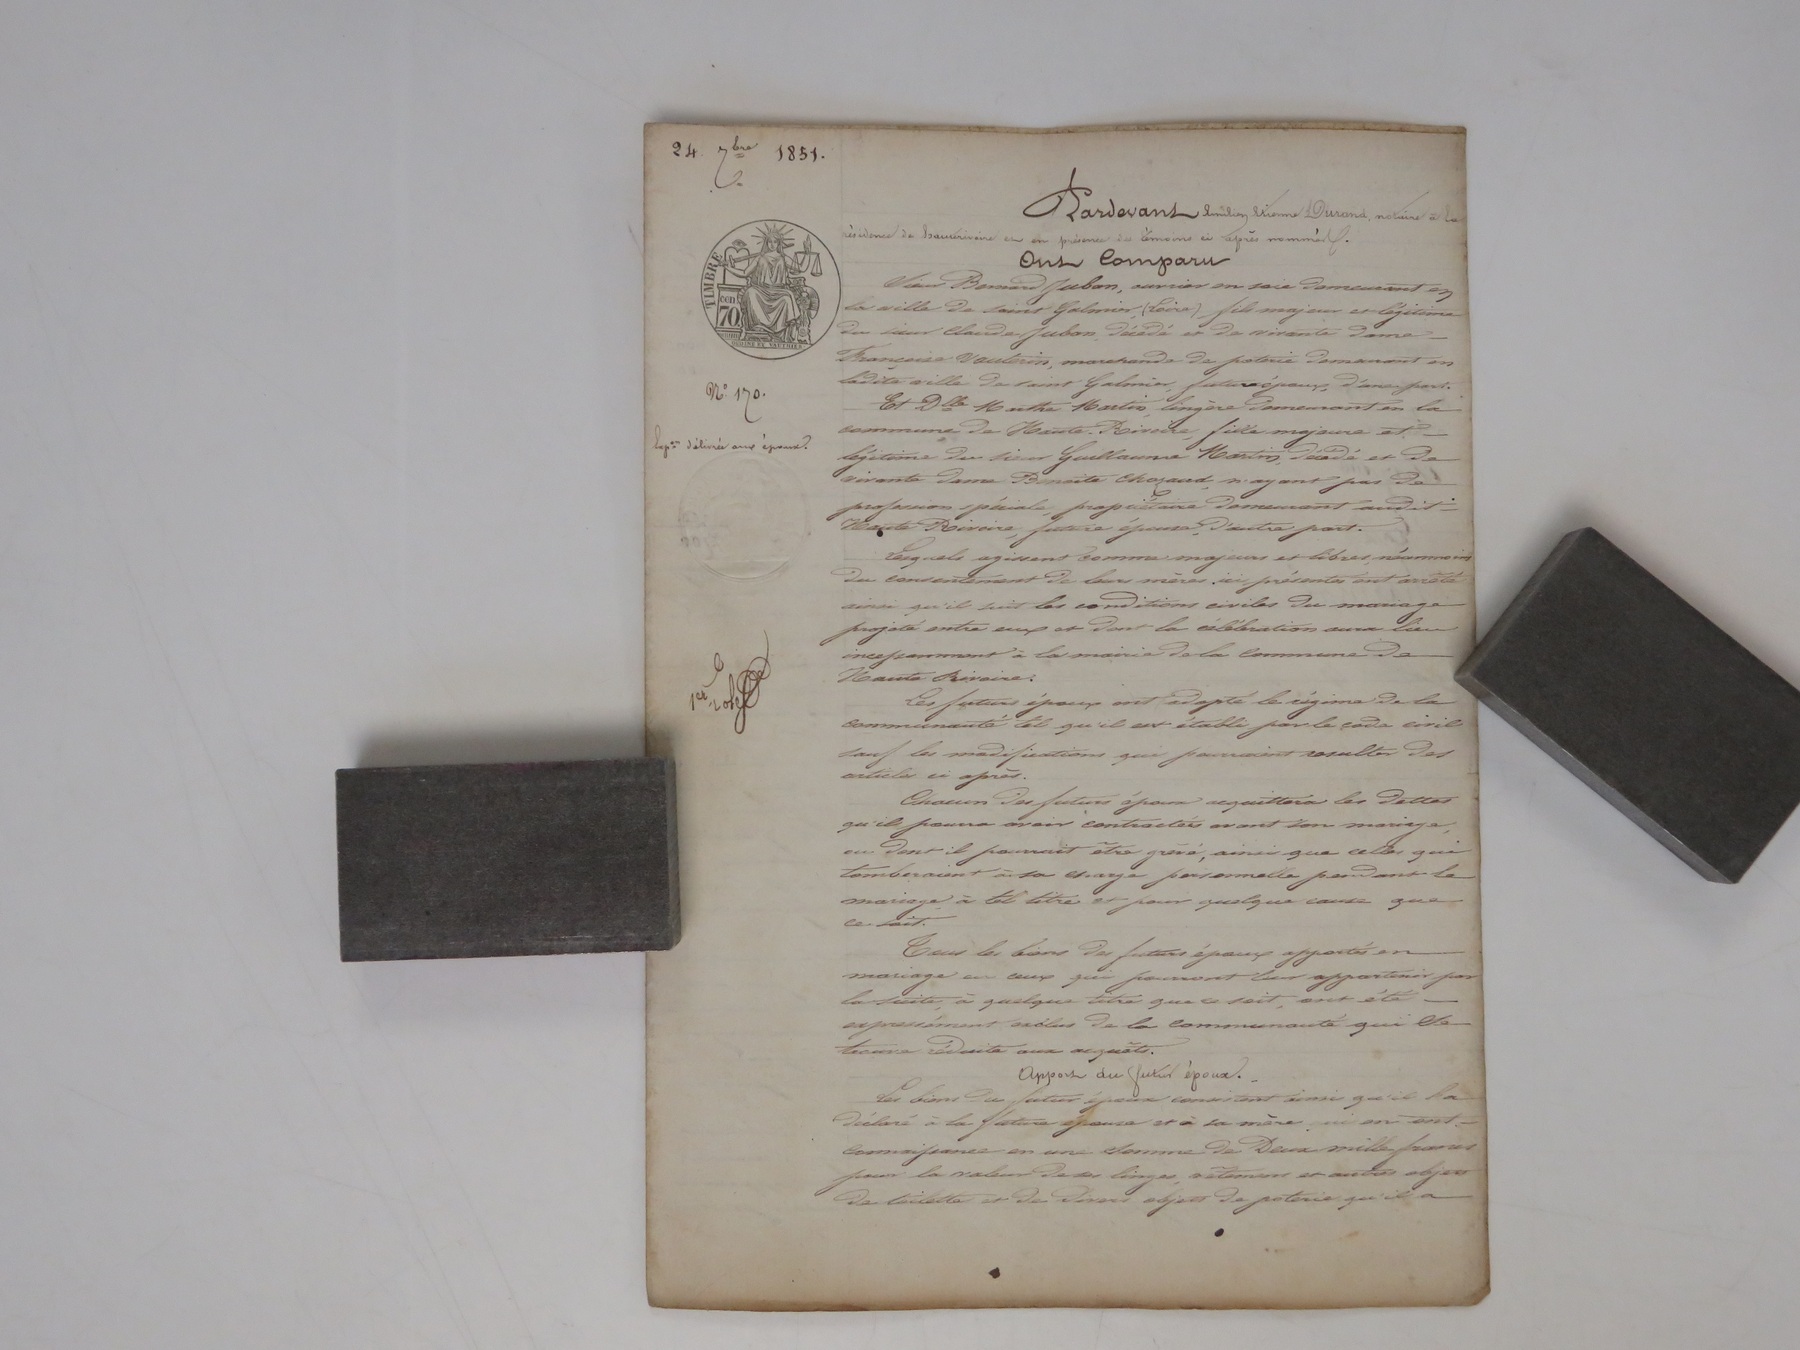 24 7bre 1851.
Pardevant Emilien Etienne Durand, notaire à la
résidence de hauterivoire et en présence des témoins ci après nommés.
Ont Comparu
TIMBRE
cen
70
N° 170.
Exp.on délivrée aux époux.
Sieur Bernard Juban, ouvrier en soie demeurant en
la ville de saint Galmier, (Loire) fils majeur et légitime
du sieur Claude Juban, décédé et de vivante dame
Françoise Vauterin, marchande de poterie demeurant en
ladite ville de saint Galmier, futur époux, d'une part.
Et Dlle Marthe Martin, lingère demeurant en la
commune de Haute-Rivoire, fille majeure et
légitime du sieur Guillaume Martin, décédé et de
vivante dame Benoîte Chazaud, n'ayant pas de
profession spéciale, propriétaire demeurant audit
Haute Rivoire, future épouse, d'autre part.
Lesquels agissent comme majeurs et libres, néanmoins
du consentement de leurs mères ici présentes ont arrêté
ainsi qu'il suit les conditions civiles du mariage
projeté entre eux et dont la célébration aura lieu
incessamment à la mairie de la commune de
Haute Rivoire.
Les futurs époux ont adopté le régime de la
communauté tel qu'il est établi par le code civil
sauf les modifications qui pourraient resulter des
articles ci après.
Chacun des futurs époux acquittera les dettes
qu'il pourra avoir contractées avant son mariage,
ou dont il pourrait être grévé, ainsi que celles qui
tomberaient à sa charge personnelle pendant le
mariage, à tel titre et pour quelque cause que
ce soit.
Tous les biens des futurs époux apportés en
mariage ou ceux qui pourront leur appartenir par
la suite, à quelque titre que ce soit, ont été
expressément exclus de la communauté qui se
trouve réduite aux acquêts.
Apport du futur époux.
Les biens du futur époux consistent ainsi qu'il l'a
déclaré à la future épouse et à sa mère qui en ont
connaissance en une somme de Deux mille francs
pour la valeur de ses linges, vêtemens et autres objets
de toilette et de divers objets de poterie qu'il a
1er